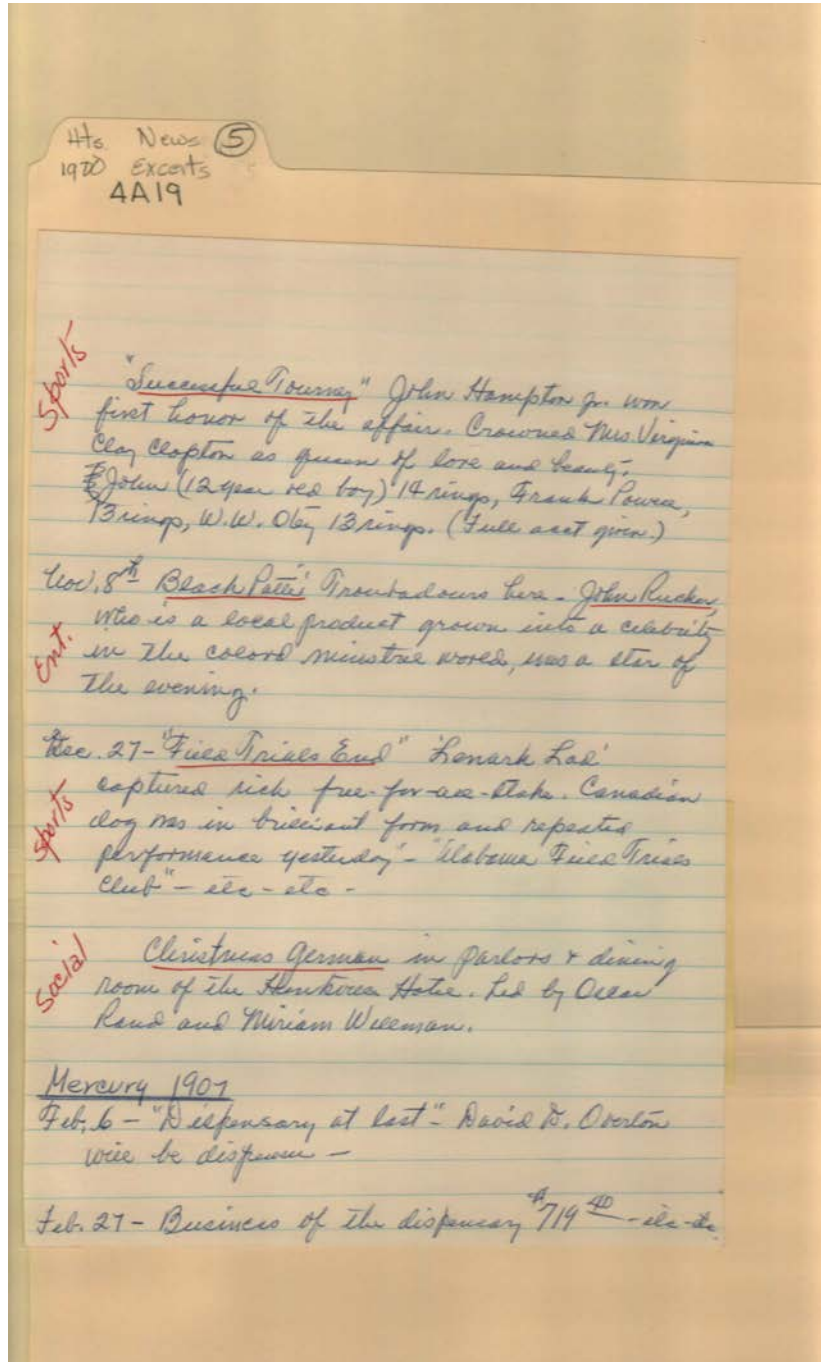 Hts. News 5
1900 Excerts
4A19
Sports
"Successful Tourney" John Hampton Jr. won
first honor of the affair. Crowned Mrs. Virginia
Clay Clopton as queen of love and beauty.
John (12 year old boy) 14 rings, Frank Power,
13 rings, W.W. 13 rings. (Full acct given.)
Nov. 8th Black Patti Troubadours here - John Rucker,
Ent.
who is a local product grown into a celebrity
in the colord minstrel world, was a star of
the evening.
Dec. 27 - "Field Trials End" 'Lenark Lad'
Sports
captured rich free-for-all-stake. Canadian
dog was in brilliant form and repeated
performance yesterday" - "Alabama Field Trials
Club" - etc - etc -
Social
Christmas German in parlors & dining
room of the Hotel. Led by Oscar
Rand and Miriam Wellman.
Mercury 1907
Feb. 6 - "Dispensary at last" - David D. Overton
will be dispenser -
Feb. 27 - Business of the dispensary $719 40 - etc - etc.